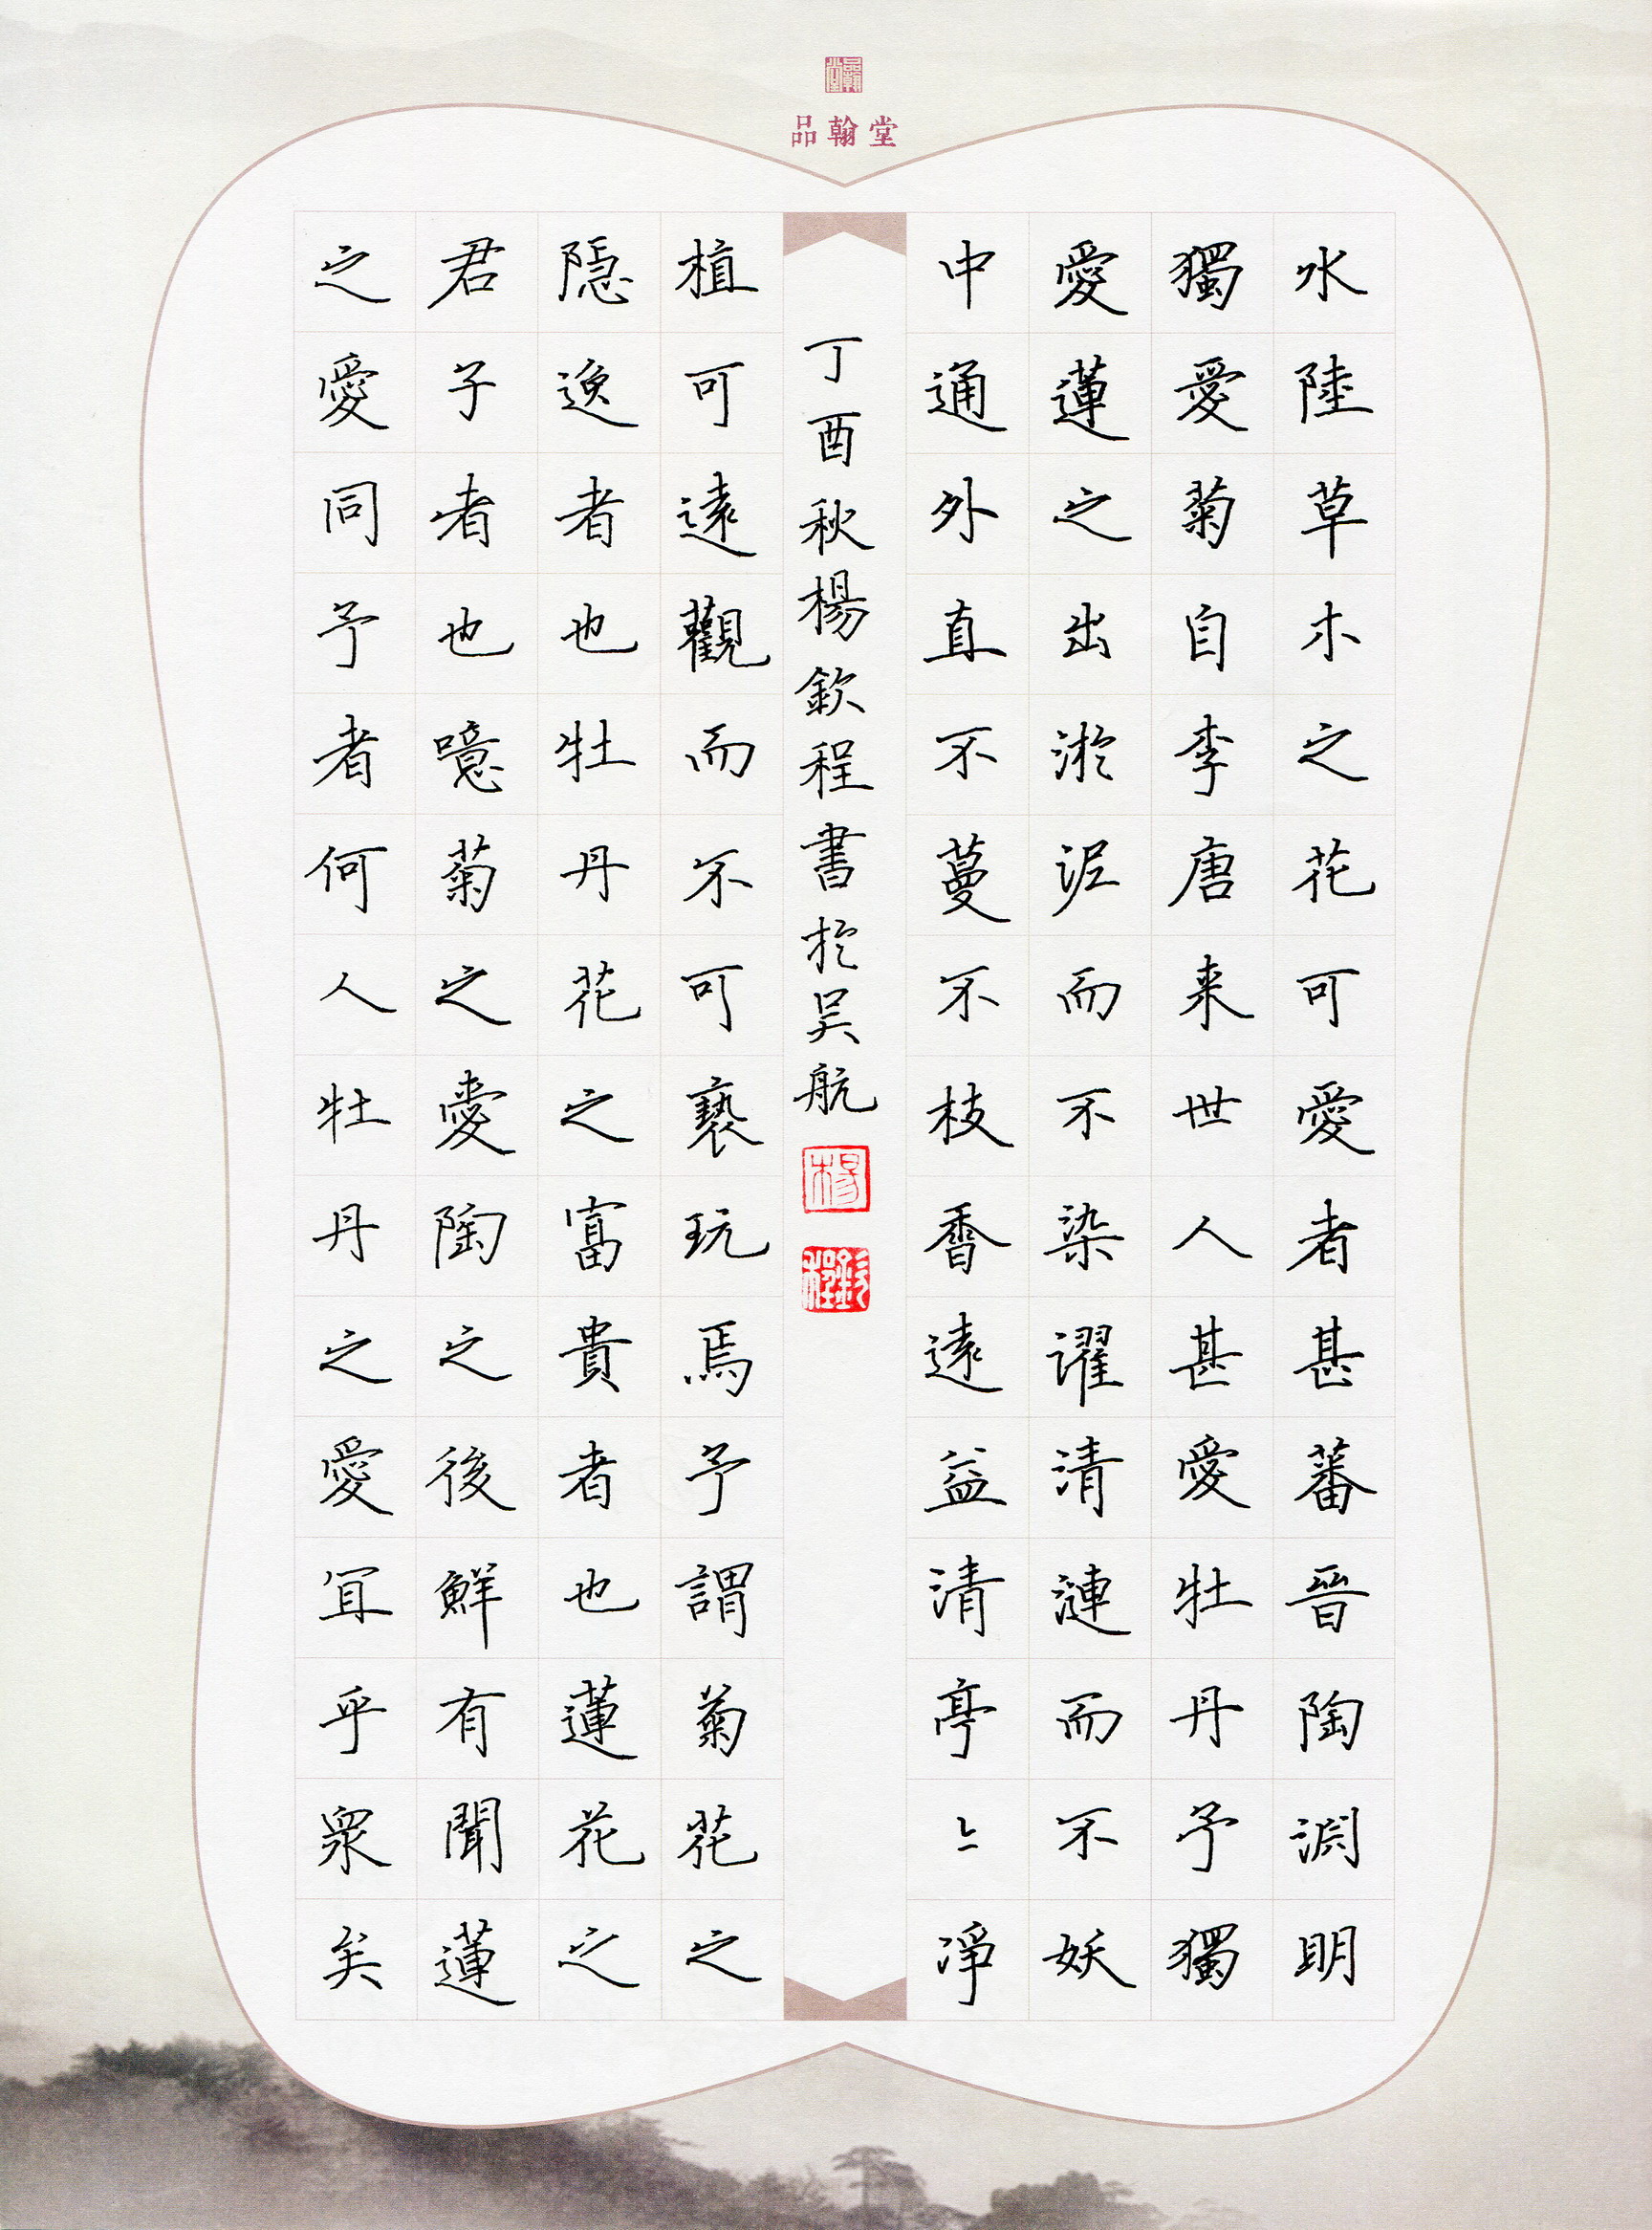 品翰堂
水陸草木之花可愛者甚蕃晉陶淵明
獨愛菊自李唐来世人甚愛牡丹予獨
愛蓮之出淤泥而不染濯清漣而不妖
中通外直不蔓不枝香遠益清亭〻淨
植可遠觀而不可褻玩焉予謂菊花之
隱逸者也牡丹花之富貴者也蓮花之
君子者也噫菊之愛陶之後鮮有聞蓮
之愛同予者何人牡丹之愛宜乎眾矣
丁酉秋楊欽程書於吴航
楊
欽程